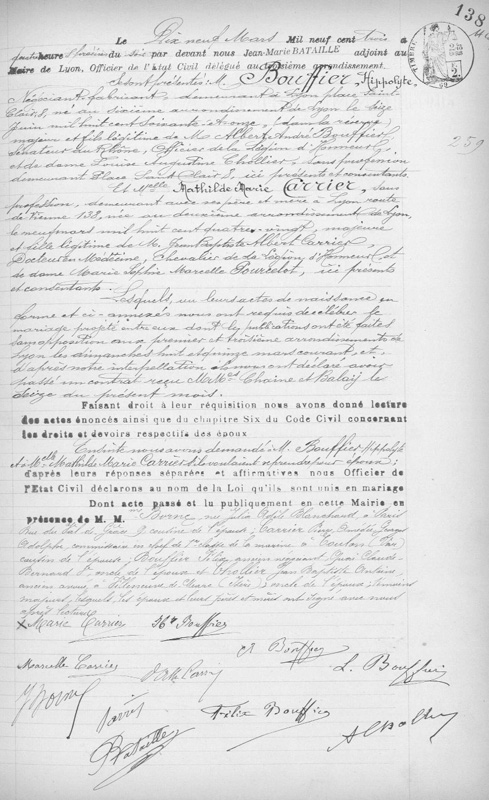 138
Le Dix neuf Mars Mil neuf cent trois à
quatre heure du soir par devant nous Jean-Marie BATAILLE adjoint au
Maire de Lyon, Officier de l'Etat Civil délégué au troisième arrondissement.
se sont présentés M. Bouffier, Hippolyte,
Négociant fabricant, demeurant à Lyon place Saint
Clair 8, né au sixième arrondissement de Lyon le seize
Juin mil huit cent soixante
majeur et fils légitime de M. Albert André Bouffier,
Officier de la Légion d'Honneur,
et de dame Louise Augustine Chollier, sans profession
demeurant Place Saint Clair 8, ici présents et consentants.
Et Melle Mathilde Marie Carrier, sans
profession, demeurant avec ses père et mère à Lyon route
de Vienne 138, née au deuxième arrondissement de Lyon,
le neuf mars mil huit cent quatre-vingt, majeure
et fille légitime de M. Jean Baptiste Albert Carrier,
Docteur en Médecine, Chevalier de la Légion d'Honneur, et
de dame Marie Sophie Marcelle Pourcelot, ici présents
et consentants.
Lesquels, vu leurs actes de naissance en
forme et ci-annexés nous ont requis de célébrer le
mariage projeté entre eux dont les publications ont été faites
sans opposition aux premier et troisième arrondissements de
Lyon les dimanches huit et quinze mars courant, et
d'après notre interpellation, ils nous ont déclaré avoir
passé un contrat reçu Me Chaine et Balaÿ le
seize du présent mois.
Faisant droit à leur réquisition nous avons donné lecture
des actes énoncés ainsi que du chapitre Six du Code Civil concernant
les droits et devoirs respectifs des époux.
Ensuite nous avons demandé à M. Bouffier Hippolyte
et à Melle Mathilde Marie Carrier s'ils voulaient se prendre pour époux;
d'après leurs réponses séparées et affirmatives nous Officier de
l'Etat Civil déclarons au nom de la Loi qu'ils sont unis en mariage
Dont acte passé et lu publiquement en cette Mairie en
présence de M. M. Borne, à Paris
Rue du Val de Grâce 9, cousin de l'épouse; Carrier
Adolphe, commissaire en chef de 1re classe de la marine à Toulon, Var
cousin de l'épouse; Bouffier Félix, Quai Claude
Bernard, oncle de l'époux et Chollier, Jean Baptiste
à Villeneuve de Marc (Isère) oncle de l'époux; témoins
majeurs, lesquels, les époux et leurs pères et mères ont signé avec nous
après lecture.
X Marie Carrier Hte Bouffier
A Bouffier
Marcelle Carrier L. Bouffier
Borne
Félix Bouffier
Bataille A Chollier
259